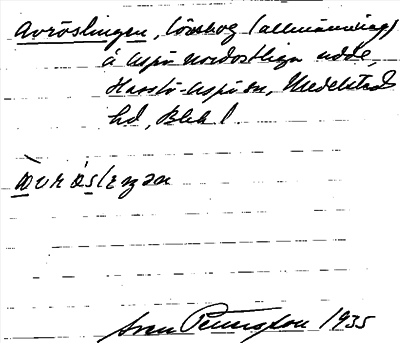 Avröslingen, lövskog (allmänning)
å Aspö nordostliga udde,
Hasslö-Aspö sn, Medelstads
hd, Blek l.
avröslɛŋən
Sven Benson 1935